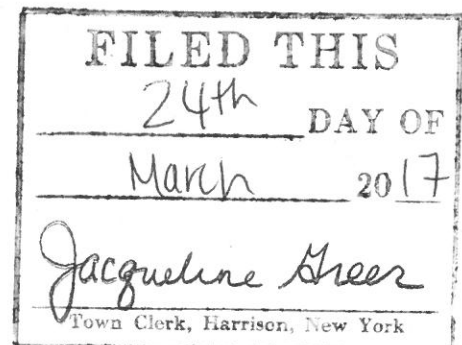 FILED THIS
24th DAY OF
March 2017
Jacqueline Greer
Town Clerk, Harrison, New York